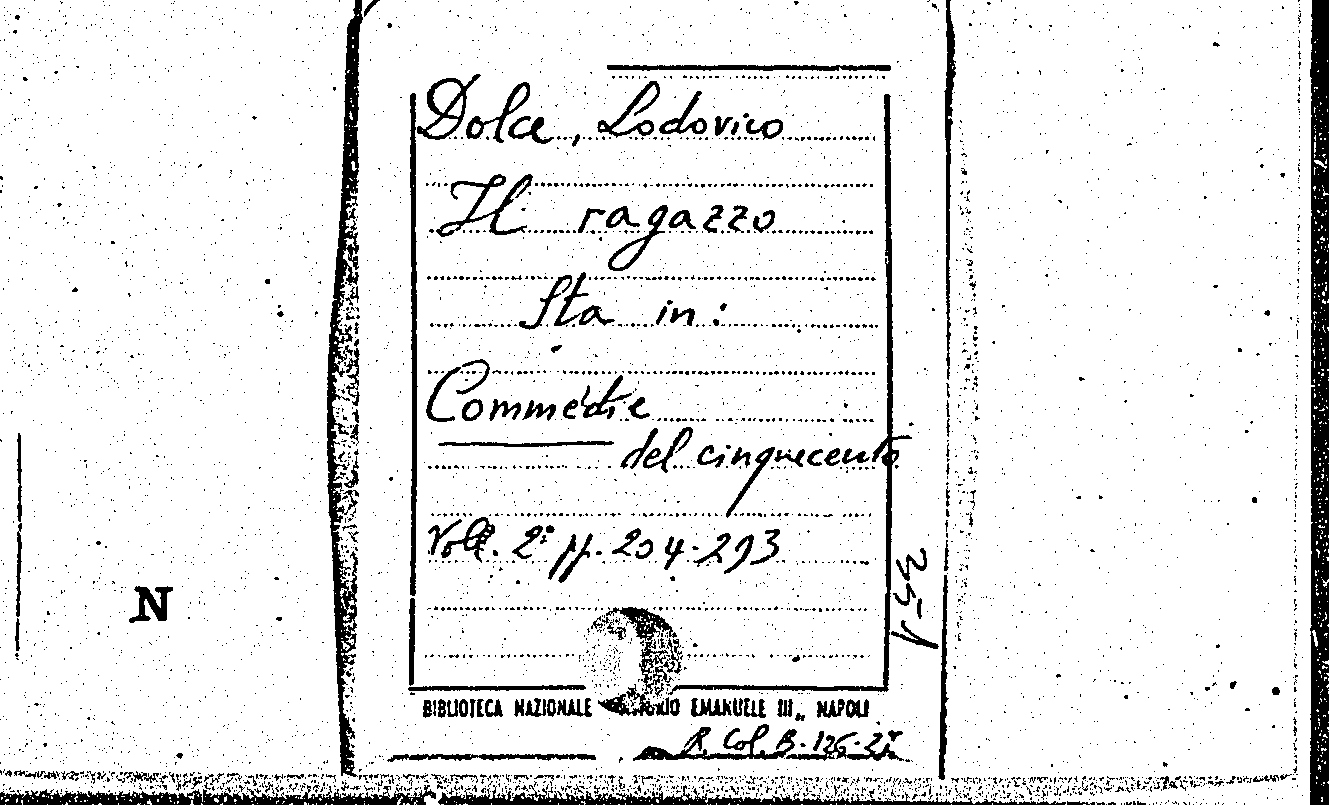 Dolce, Lodovico
Il ragazzo
Sta in:
Commedie
del cinquecento
Vol. 2° pp. 204-293
N
BIBLIOTECA NAZIONALE EMANUELE III„ NAPOLI
R. Col. B.